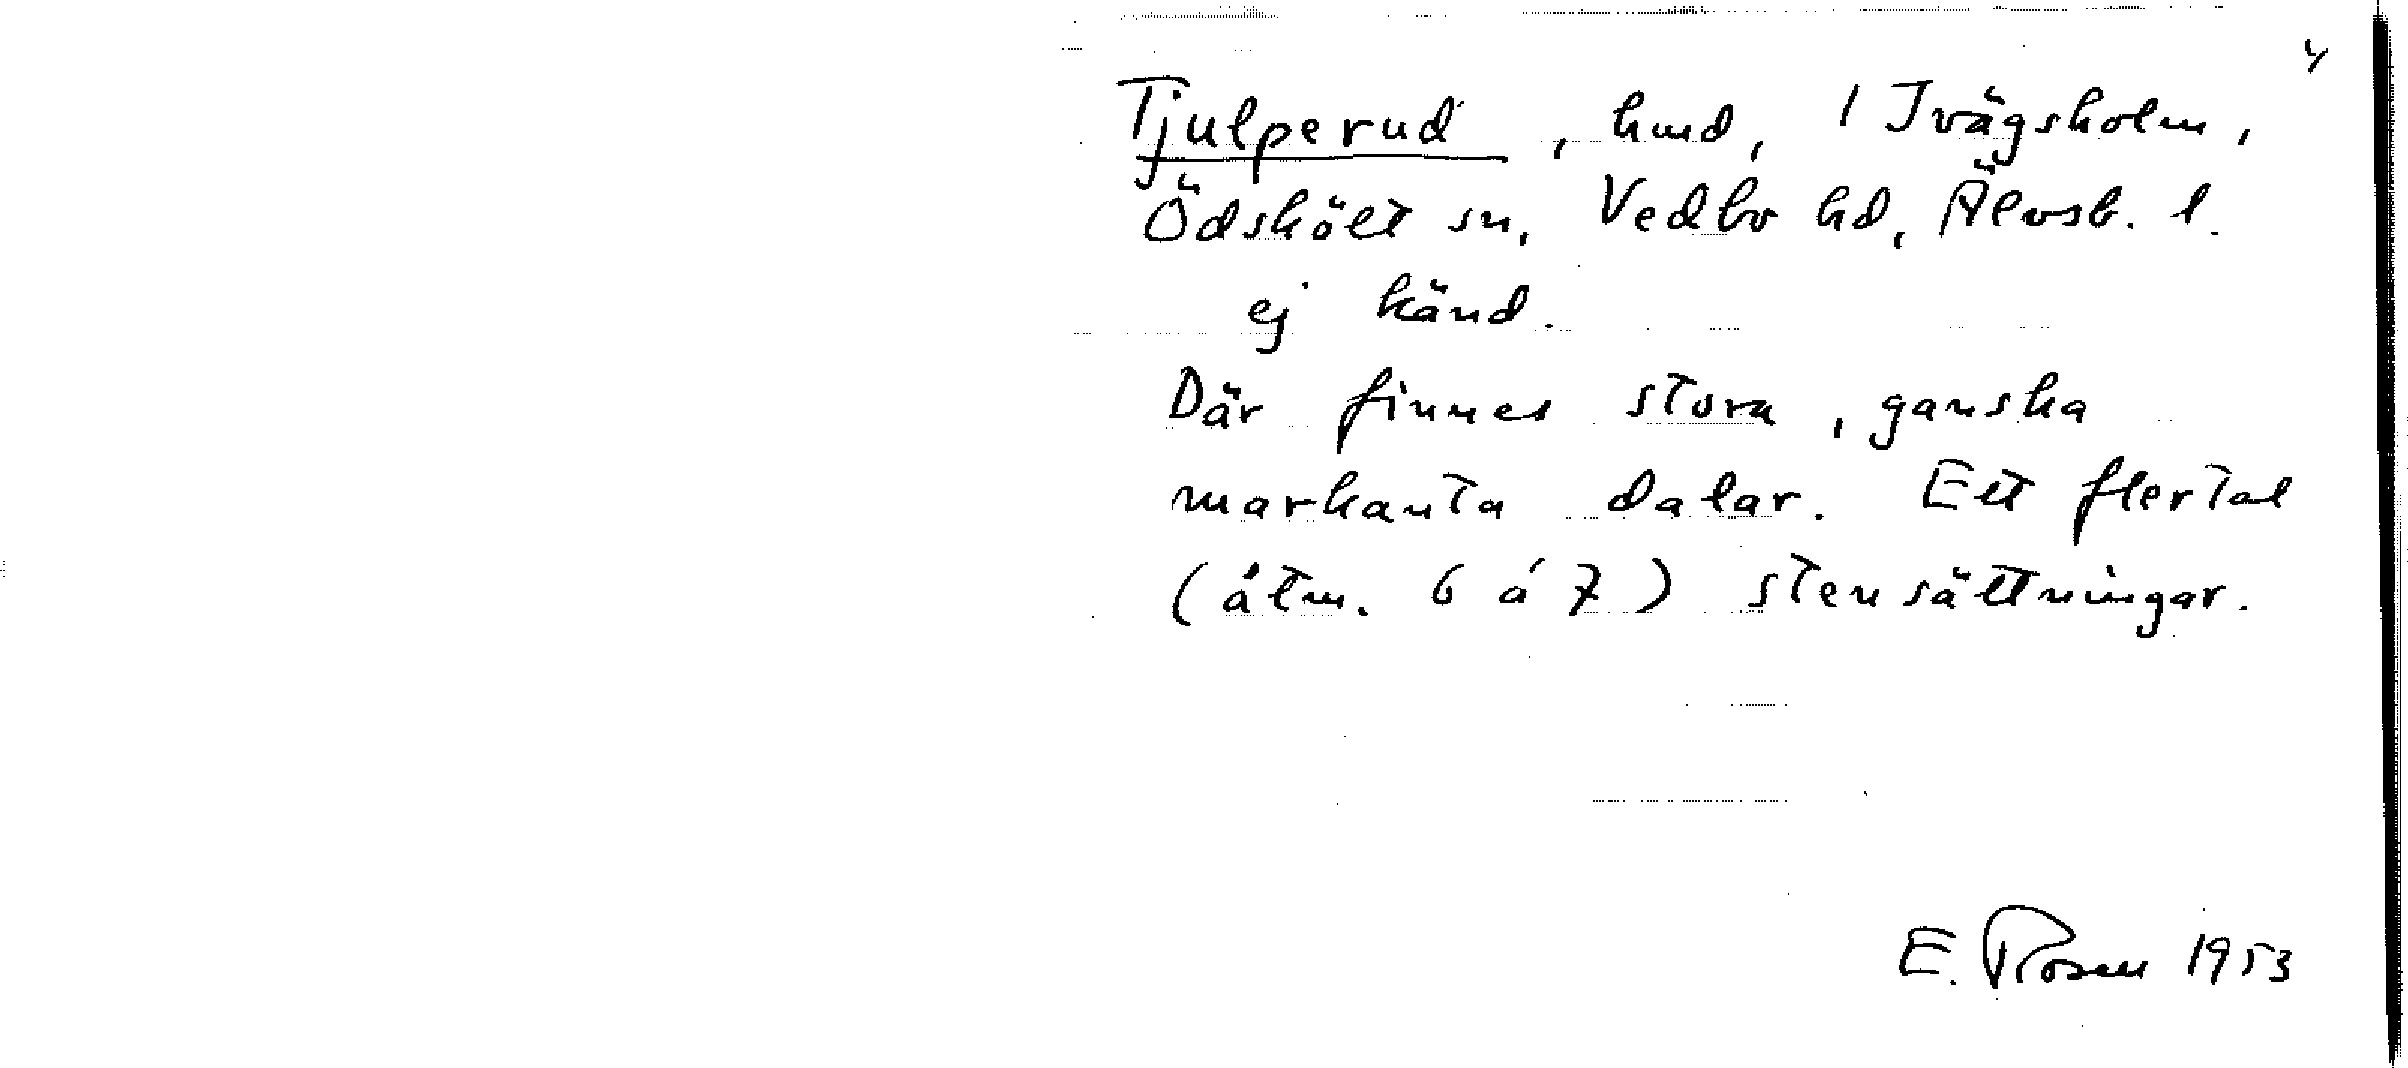 Tjulperud, hmd, 1 Ivägsholm,
Ödskölt sn, Vedbo hd, Älvsb. l.
ej känd.
Där finnes stora, ganska
markanta dalar. Ett flertal
(åtm. 6 á 7) stensättningar.
E. Rosen 1953